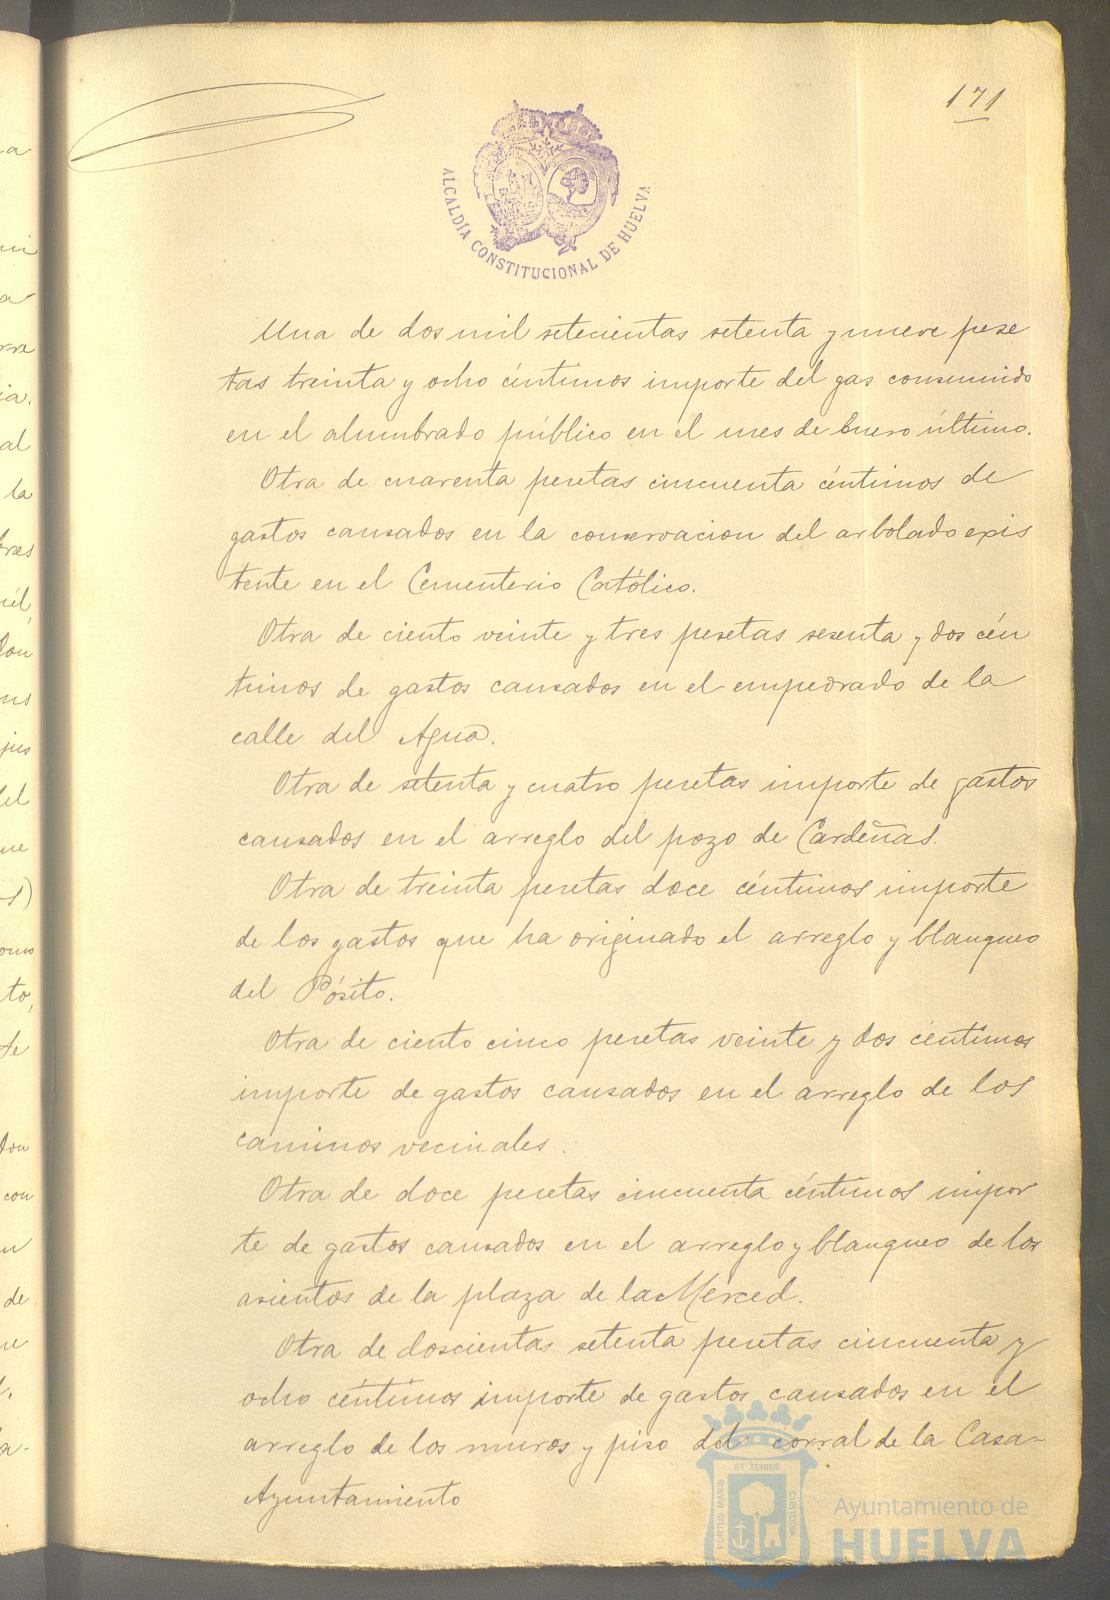 171
ALCALDÍA CONSTITUCIONAL DE HUELVA
Una de dos mil setecientas setenta y nueve pese
tas treinta y ocho céntimos importe del gas consumido
en el alumbrado público en el mes de Enero último.
Otra de cuarenta pesetas cincuenta céntimos de
gastos causados en la conservacion del arbolado exis
tente en el Cementerio Católico.
Otra de ciento veinte y tres pesetas sesenta y dos cén
timos de gastos causados en el empedrado de la
calle del Agua.
Otra de setenta y cuatro pesetas importe de gastos
causados en el arreglo del pozo de Cardeñas.
Otra de treinta pesetas doce céntimos importe
de los gastos que ha originado el arreglo y blanqueo
del Pósito.
Otra de ciento cinco pesetas veinte y dos céntimos
importe de gastos causados en el arreglo de los
caminos vecinales.
Otra de doce pesetas cincuenta céntimos impor
te de gastos causados en el arreglo y blanqueo de los
asientos de la plaza de la Merced.
Otra de doscientas setenta pesetas cincuenta y
ocho céntimos importe de gastos causados en el
arreglo de los muros y piso del corral de la Casa-
Ayuntamiento
ET TERRA
PORTUS MARIS
CUSTODIA
Ayuntamiento de
HUELVA